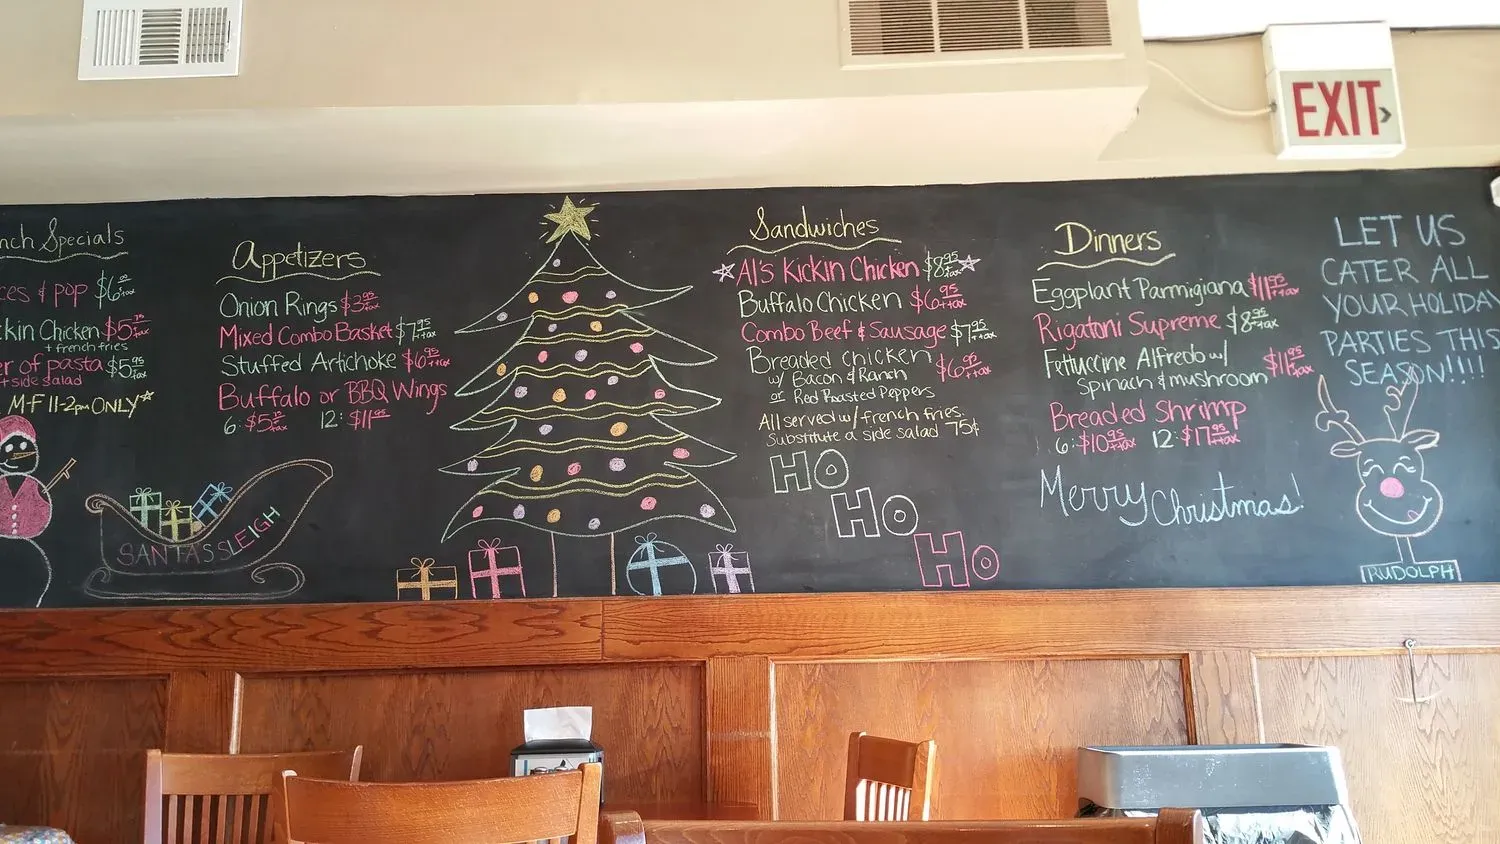 EXIT
nch Specials
ces & pop $6.00 +tax
ckin Chicken $5.75 +tax
+ french fries
er of pasta $5.95 +tax
+ side salad
M-F 11-2pm ONLY
SANTAS SLEIGH
Appetizers
Onion Rings $3.95 +tax
Mixed Combo Basket $7.95 +tax
Stuffed Artichoke $6.95 +tax
Buffalo or BBQ Wings
6: +tax 12:
Sandwiches
Al's Kickin Chicken $8.95 +tax
Buffalo Chicken $6.95 +tax
Combo Beef & Sausage $7.95 +tax
Breaded Chicken $6.95 +tax
w/ Bacon & Ranch
or Red Roasted Peppers
All served w/ french fries.
Substitute a side salad 75¢
HO
HO
HO
Dinners
Eggplant Parmigiana $11.95 +tax
Rigatoni Supreme $8.95 +tax
Fettuccine Alfredo w/ $11.95 +tax
Spinach & mushroom
Breaded Shrimp
6: $10.95 +tax 12: $17.95 +tax
Merry Christmas!
LET US
CATER ALL
YOUR HOLIDAY
PARTIES THIS
SEASON!!!!
RUDOLPH